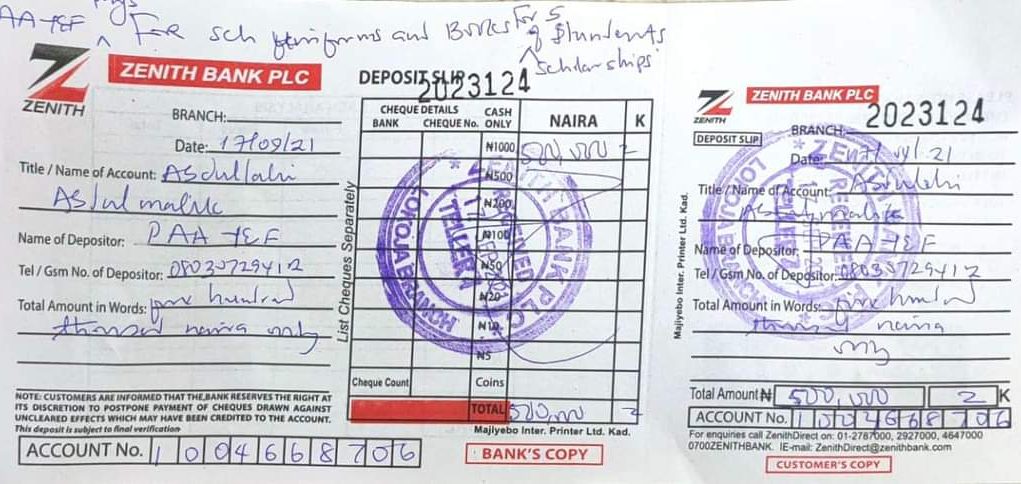 AA-TEF for sch uniforms and Books for 5 students
scholarships
ZENITH
ZENITH BANK PLC
BRANCH:
Date: 17/09/21
Title / Name of Account: Abdullahi
Abdulmalik
Name of Depositor: PAA-TEF
Tel / Gsm No. of Depositor: 08030729412
Total Amount in Words: five hundred
thousand naira only
NOTE: CUSTOMERS ARE INFORMED THAT THE,BANK RESERVES THE RIGHT AT
ITS DISCRETION TO POSTPONE PAYMENT OF CHEQUES DRAWN AGAINST
UNCLEARED EFFECTS WHICH MAY HAVE BEEN CREDITED TO THE ACCOUNT.
This deposit is subject to final verification
ACCOUNT No. 1004668706
DEPOSIT SLIP
2023124
CHEQUE DETAILS
BANK CHEQUE No. CASH ONLY NAIRA K
₦1000 500,000 =
₦500
₦200
₦100
₦50
₦20
₦10
₦5
List Cheques Separately
Cheque Count Coins
TOTAL 500,000 =
Majiyebo Inter. Printer Ltd. Kad.
BANK'S COPY
ZENITH BANK PLC
RECEIVED
TELLER
LOKOJA BRANCH
Majiyebo Inter. Printer Ltd. Kad.
ZENITH
ZENITH BANK PLC
2023124
DEPOSIT SLIP
BRANCH:
Date: 17/09/21
Title / Name of Account: Abdullahi
Abdulmalik
Name of Depositor: PAA-TEF
Tel / Gsm No. of Depositor: 08030729412
Total Amount in Words: five hundred
thousand naira
only
Total Amount ₦ 500,000 = K
ACCOUNT No. 1004668706
For enquiries call ZenithDirect on: 01-2787000, 2927000, 4647000
0700ZENITHBANK. IE-mail: ZenithDirect@zenithbank.com
CUSTOMER'S COPY